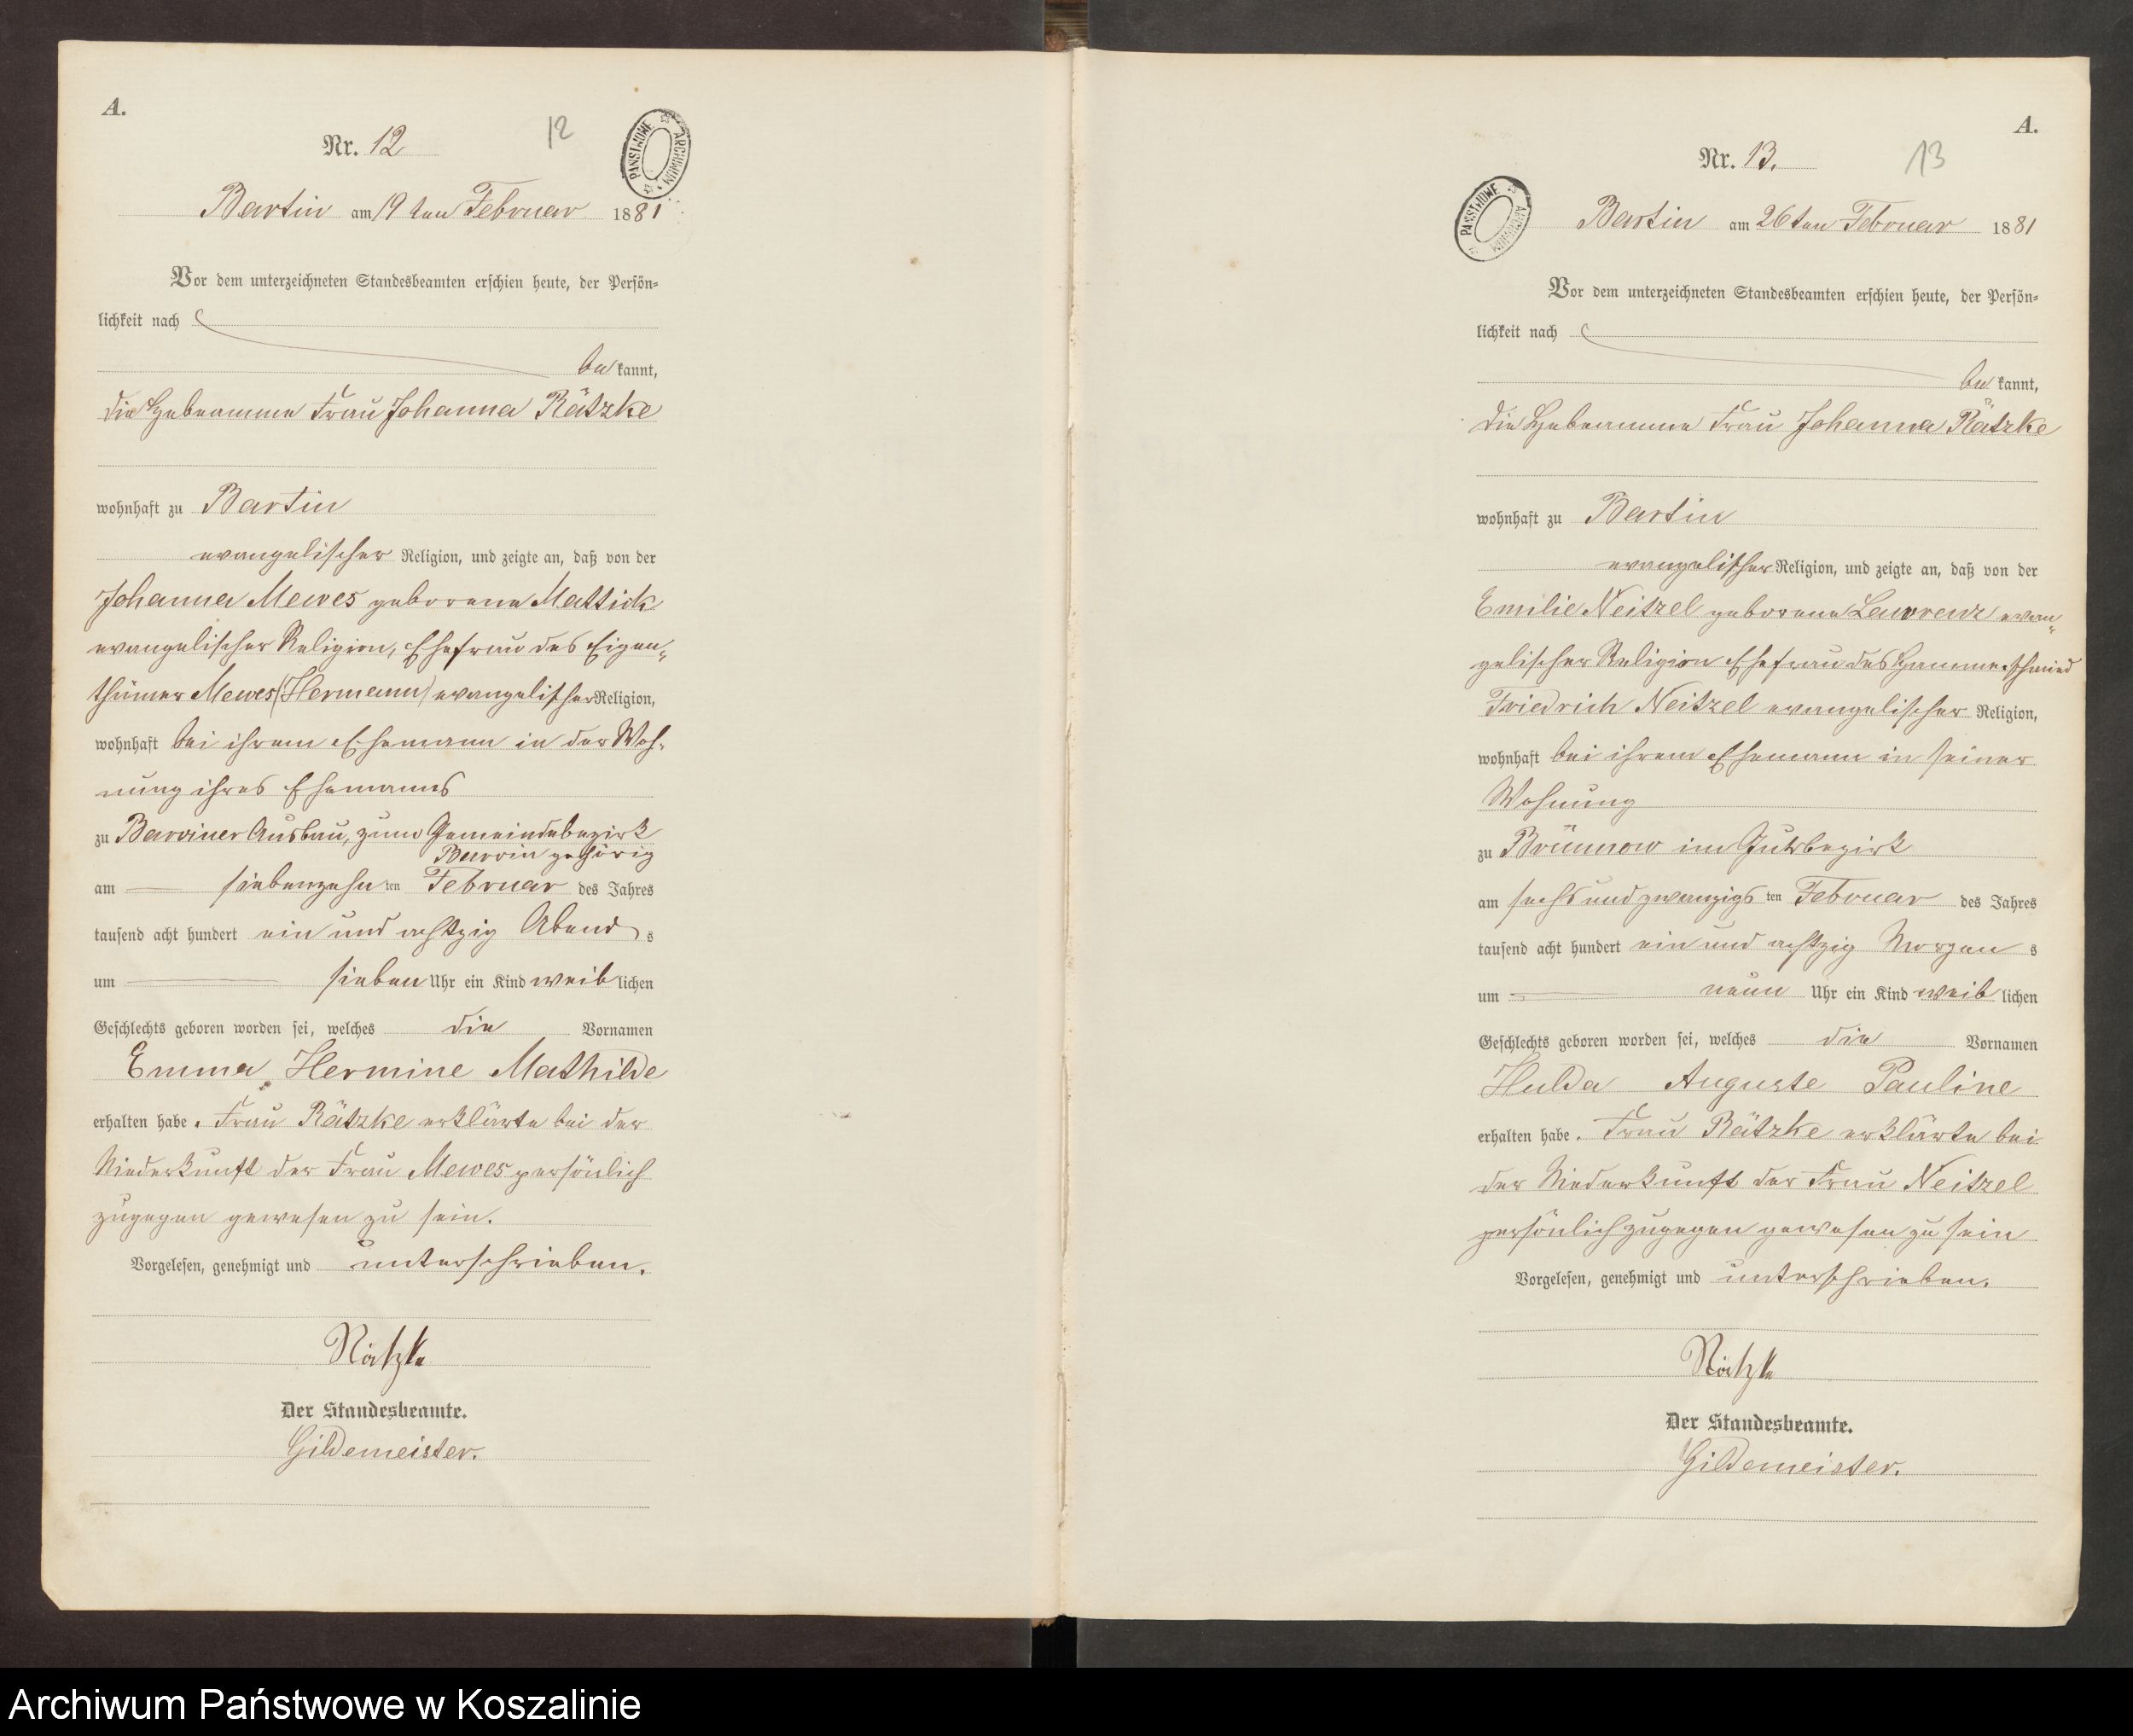 A.
Nr. 12
12
PAŃSTWOWE ARCHIWUM
Bartin am 19ten Februar 1881
Vor dem unterzeichneten Standesbeamten erschien heute, der Persön-
lichkeit nach
bekannt,
die Hebeamme Frau Johanna Rätzke
wohnhaft zu Bartin
evangelischer Religion, und zeigte an, daß von der
Johanna Mewes geborene Mattick
evangelischer Religion, Ehefrau des Eigen-
thümer Mewes (Hermann) evangelischer Religion,
wohnhaft bei ihrem Ehemann in der Woh-
nung ihres Ehemanns
zu Barviner Ausbau, zum Gemeindebezirk
Barvin gehörig
am siebenzehnten Februar des Jahres
tausend acht hundert ein und achtzig Abends
um sieben Uhr ein Kind weiblichen
Geschlechts geboren worden sei, welches die Vornamen
Emma Hermine Mathilde
erhalten habe. Frau Rätzke erklärte bei der
Niederkunft der Frau Mewes persönlich
zugegen gewesen zu sein.
Vorgelesen, genehmigt und unterschrieben.
Rätzke
Der Standesbeamte.
Gildemeister.
A.
Nr. 13.
13
PAŃSTWOWE ARCHIWUM
Bartin am 26ten Februar 1881
Vor dem unterzeichneten Standesbeamten erschien heute, der Persön-
lichkeit nach
bekannt,
die Hebeamme Frau Johanna Rätzke
wohnhaft zu Bartin
evangelischer Religion, und zeigte an, daß von der
Emilie Neitzel geborene Lawrenz evan-
gelischer Religion Ehefrau des Hammerschmied
Friedrich Neitzel evangelischer Religion,
wohnhaft bei ihrem Ehemann in seiner
Wohnung
zu Brünnow im Gutsbezirk
am sechs und zwanzigsten Februar des Jahres
tausend acht hundert ein und achtzig Morgens
um neun Uhr ein Kind weiblichen
Geschlechts geboren worden sei, welches die Vornamen
Hulda Auguste Pauline
erhalten habe. Frau Rätzke erklärte bei
der Niederkunft der Frau Neitzel
persönlich zugegen gewesen zu sein
Vorgelesen, genehmigt und unterschrieben.
Rätzke
Der Standesbeamte.
Gildemeister.
Archiwum Państwowe w Koszalinie